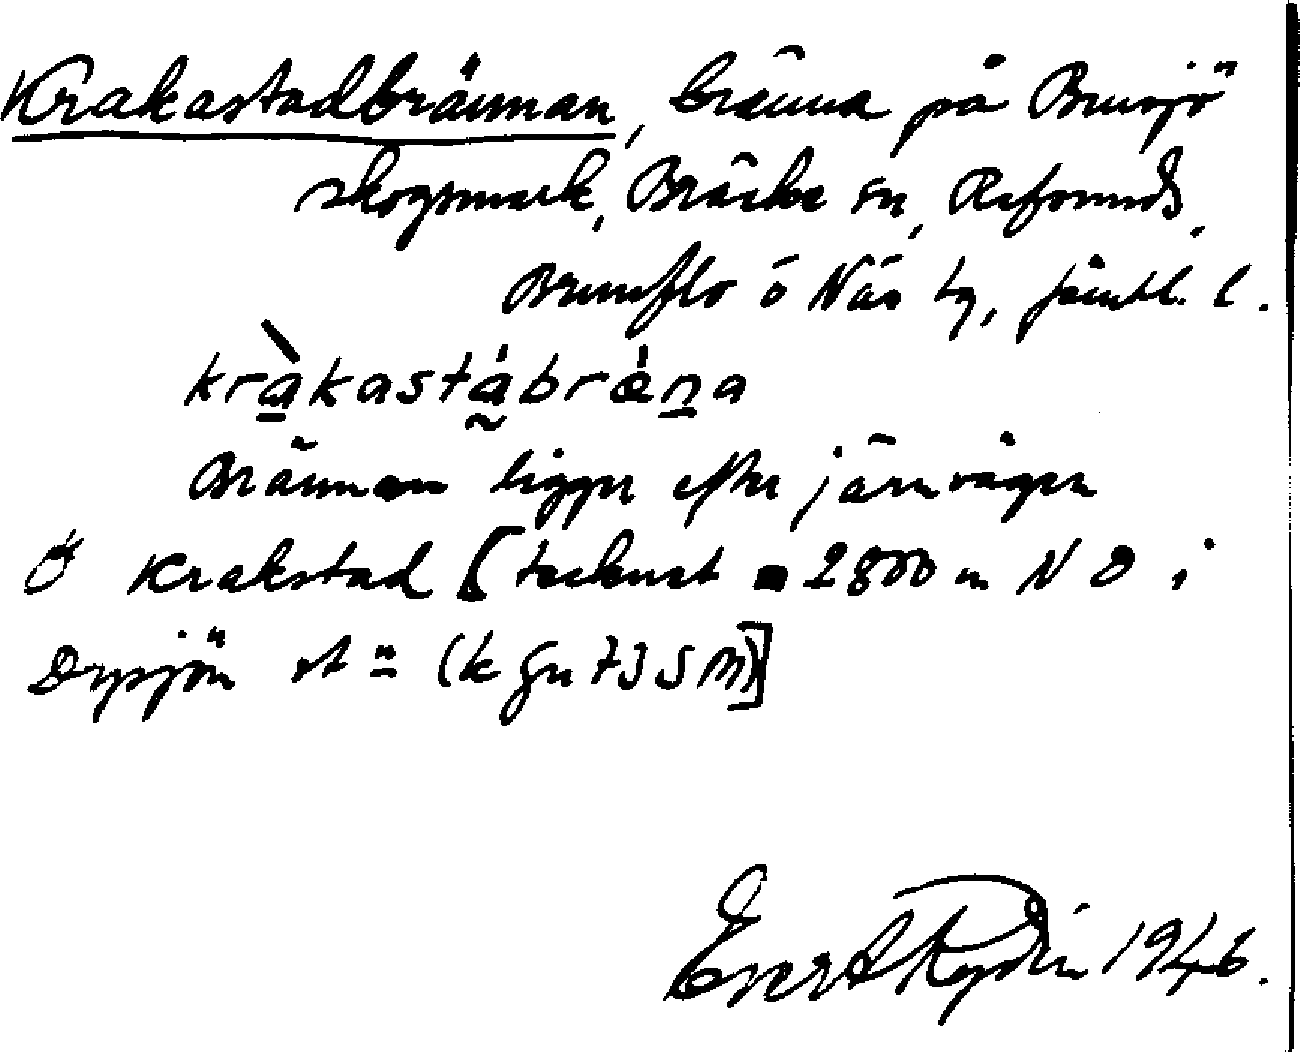 Krakastadbrännan, bränna på Bensjö
skogsmark, Bräcke sn, Refsunds,
Brunflo o Näs tg, Jämtl. l.
kràkastábrǽna
Brännan ligger efter järnvägen
Ö Krakstad [tecknet 2800 m NO i
Dysjön st = (k gn 73 S M)]
Evert Rydin 1946.